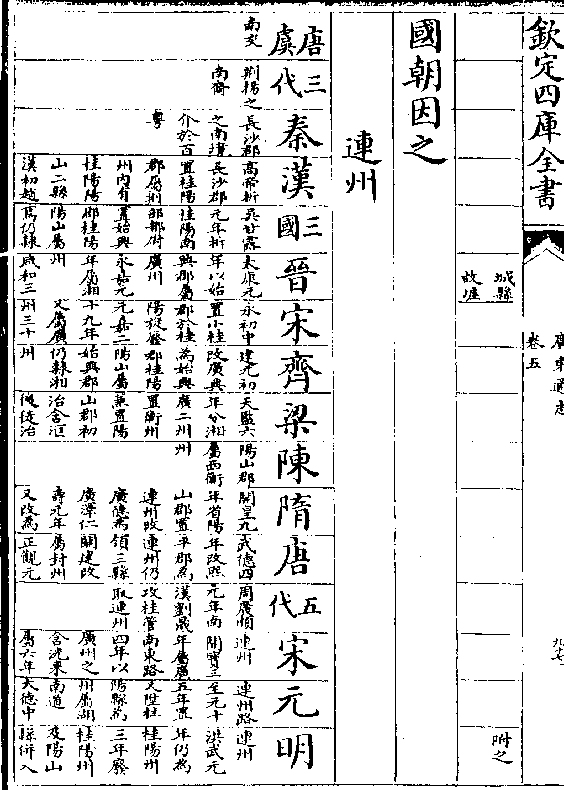 欽定四庫全書
廣東通志
卷五
九七
城縣
故墟
附之
國朝因之
連州
唐虞
南交
三代
荆揚之
南裔
秦
長沙郡
之南境
介於百
粤
漢
高帝析
長沙郡
置桂陽
郡屬荆
州内有
桂陽陽
山二縣
漢初趙
三國
吳甘露
元年析
桂陽南
部都尉
置始興
郡桂陽
陽山屬
焉仍隸
晉
太康元
年以始
興郡屬
廣州
永嘉元
年屬湘
州
咸和三
宋
永初中
置小桂
郡於桂
陽旋廢
元嘉二
十九年
又屬廣
州三十
齊
建元初
改廣興
為始興
郡桂陽
陽山屬
始興郡
仍隸湘
州
梁
天監六
年分湘
廣二州
置衡州
兼置陽
山郡初
治含洭
後徙治
陳
陽山郡
屬西衡
州
隋
開皇九
年省陽
山郡置
連州改
廣德為
廣澤仁
壽元年
又改為
唐
武德四
年改熙
平郡為
連州仍
領三縣
開建改
屬封州
正觀元
五代
周廣順
元年南
漢劉晟
攻桂管
取連州
宋
連州
開寶三
年屬廣
南東路
四年以
廣州之
含洸來
屬六年
元
連州路
至元十
五年置
又陞桂
陽縣為
州屬湖
南道
大德中
明
連州
洪武元
年仍為
桂陽州
三年廢
桂陽州
及陽山
縣併入